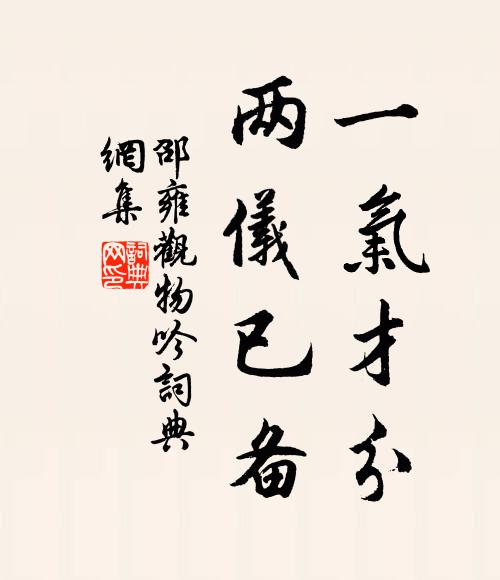 一氣才分
两儀已备
邵雍觀物吟詞典
網集
詞典
网印